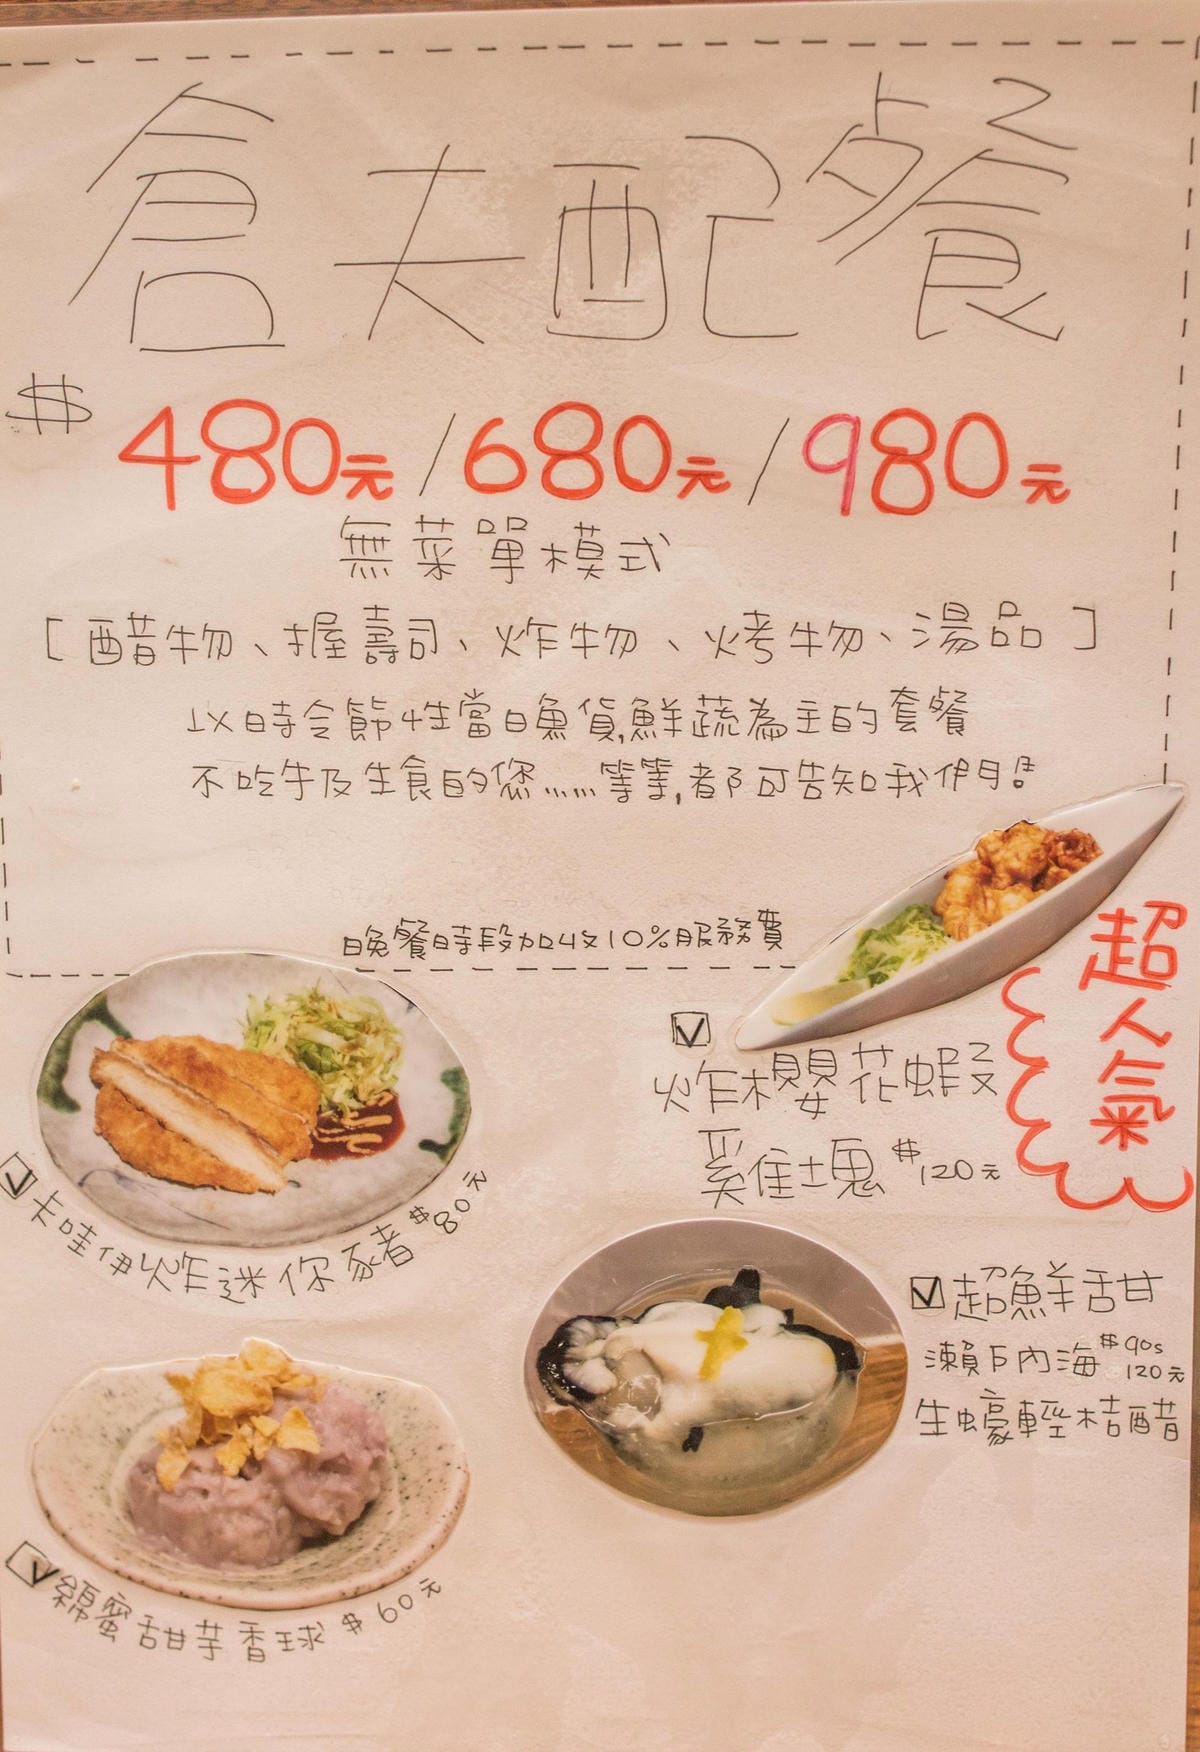 倉夫配餐
$480元/680元/980元
無菜單模式
[醋物、握壽司、炸物、烤物、湯品]
以時令節性當日魚貨,鮮蔬為主的套餐
不吃牛及生食的您……等等,都可告知我們!
晚餐時段加收10%服務費
超人氣
炸櫻花蝦
雞塊$120元
卡哇伊炸迷你豬$80元
超鮮甜
瀨戶內海$90s
120元
生蠔輕桔醋
綿蜜甜芋香球$60元